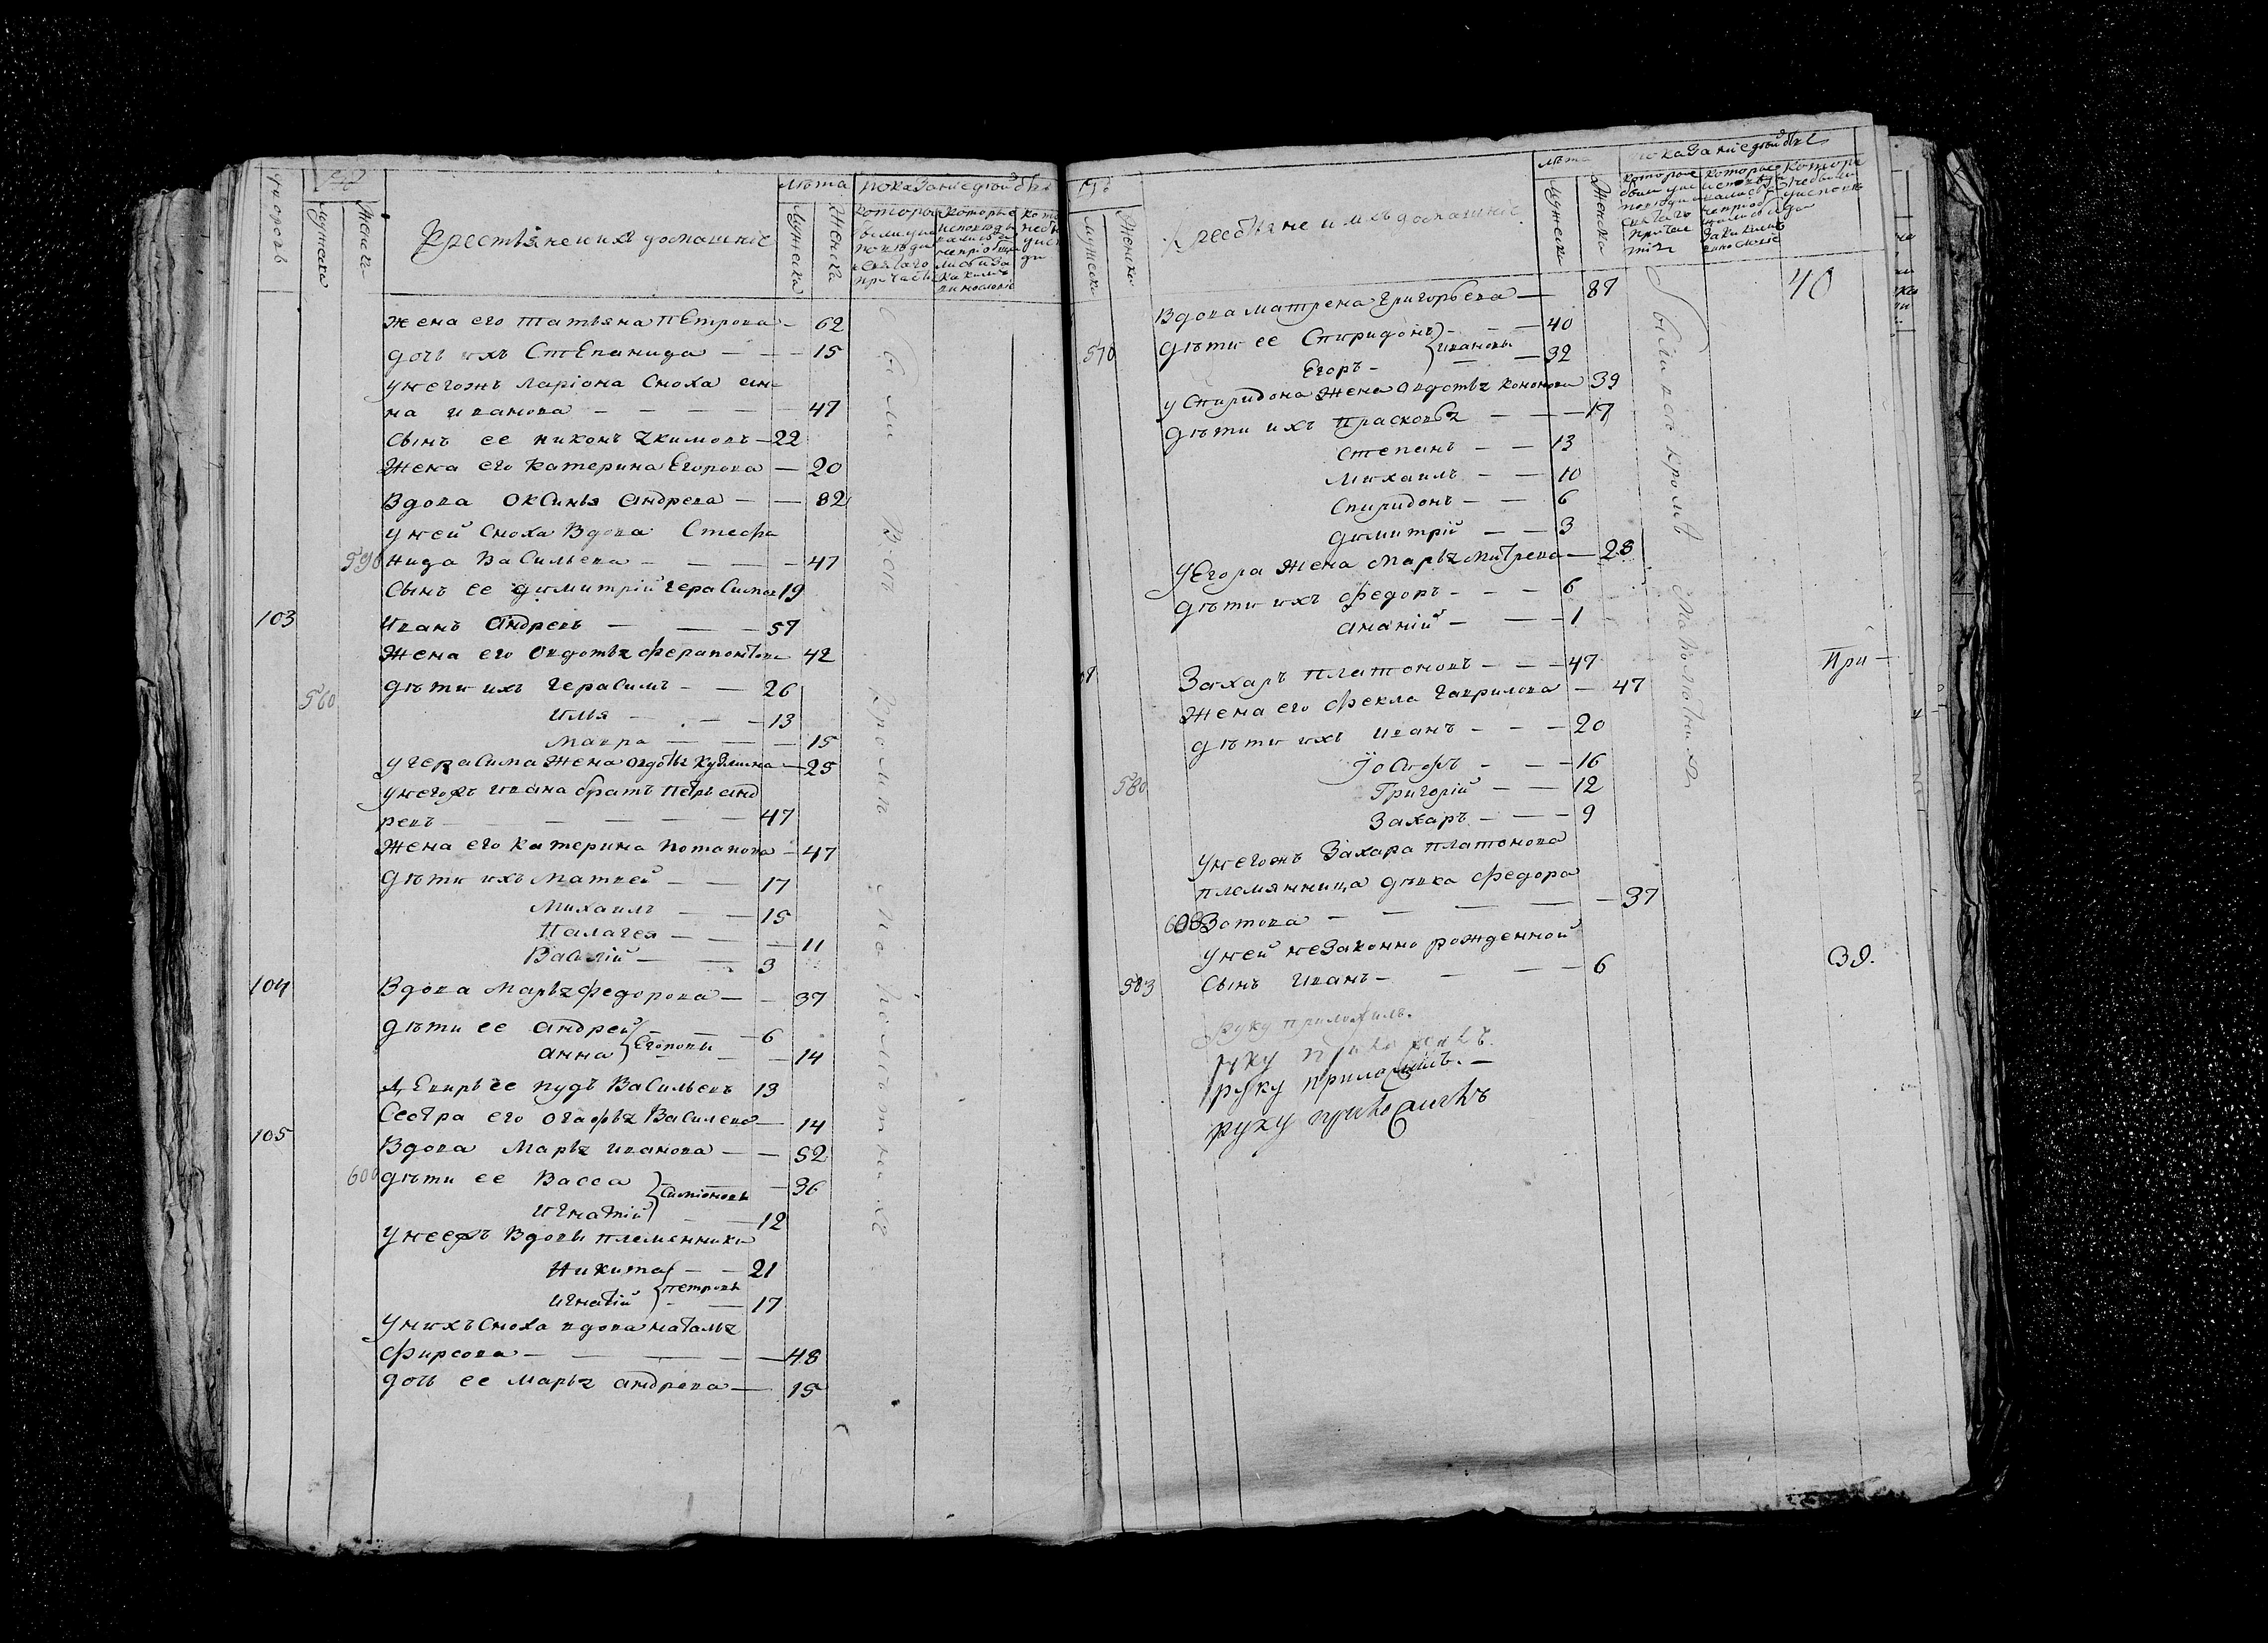 Крестьяне и ихъ домашніе
лѣта
мужеска
женска
жена его татьяна петрова — 62
дочь ихъ Степанида — — — 15
у негожъ ларіона Сноха ан
на иванова — — — — — 47
Сынъ ее никонъ екимовъ — 22
Жена его катерина Егорова — 20
Вдова Оксинья андрева — — 82
у ней Сноха Вдова Стефа
590 нида Васильева — — — — 47
Сынъ ее димитрій герасимов 19
103 Иванъ андревъ — — — 57
Жена его овдотья ферапонтова 42
560 дѣти ихъ герасимъ — — 26
илья — — — 13
мавра — — — 15
у герасима жена овдотья кузмина — 25
у негожъ ивана братъ петръ анд
ревъ — — — — — 47
Жена его катерина потапова — 47
дѣти ихъ матвей — — 17
михаилъ — — 15
Палагея — — — 11
Василій — — 3
104 Вдова Марья федорова — — 37
дѣти ее андрей — — 6
Егоровы
анна — — 14
деверь ее нудъ Васильевъ 13
Сестра его огафья Василева — 14
105 Вдова Марья иванова — — 52
600 дѣти ее Васса — — 36
Симіоновы
игнатій — — 12
у неежъ Вдовы племянники
Никита — — 21
петровы
игнатій — — 17
у нихъ Сноха вдова наталья
фирсова — — — — — 48
дочь ее марья андрева — 15
Сіи
Вси
кромѣ
малолѣтнихъ
Крестьяне и ихъ домашніе
лѣта
мужеска
женска
Вдова матрена григорьева — 87
40
дѣти ее Спиридонъ — — — 40
570
ивановы
Егоръ — — — 32
у Спиридона жена овдотья кононова 39
дѣти ихъ прасковья — — — 17
степанъ — — 13
михаилъ — — 10
Спиридонъ — — 6
димитрій — — 3
у Егора жена марья митрева — 28
дѣти ихъ федоръ — — — 6
ананій — — — 1
Захаръ платоновъ — — — 47
При —
Жена его фекла гаврилова — 47
дѣти ихъ иванъ — — — 20
Іосифъ — — — 16
580 Григорій — — 12
Захаръ — — — 9
у негожъ Захара платонова
племянница девка федора
608 Зотова — — — — — 37
у ней незаконно рожденной
583 Сынъ иванъ — — — — 6
были вси кромѣ малолѣтнихъ
руку приложилъ.
руку приложилъ.
руку приложилъ. —
руку приложилъ